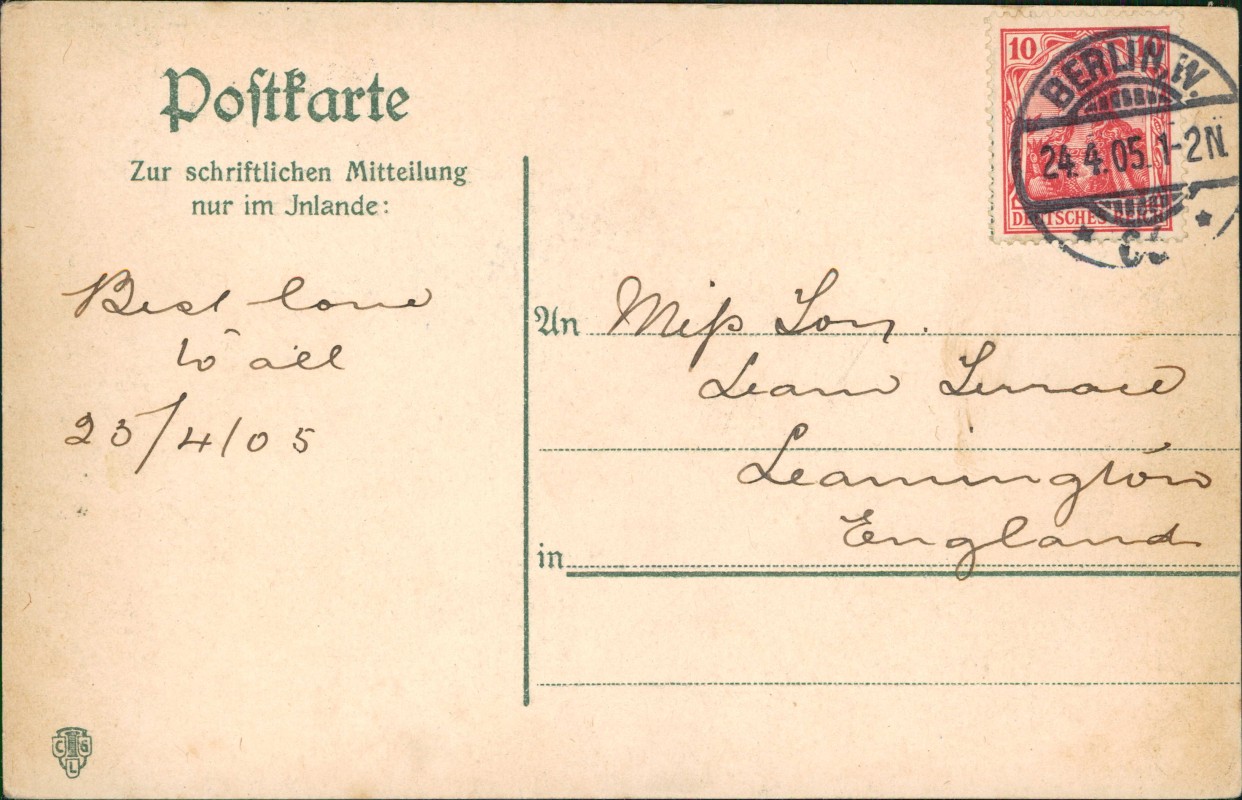 Postkarte
Zur schriftlichen Mitteilung
nur im Jnlande:
Best love
to all
23/4/05
10 10
BERLIN, W.
24.4.05.1-2N
DEUTSCHES REICH
An Miss
Leam Terrace
Leamington
England
in
C G
L